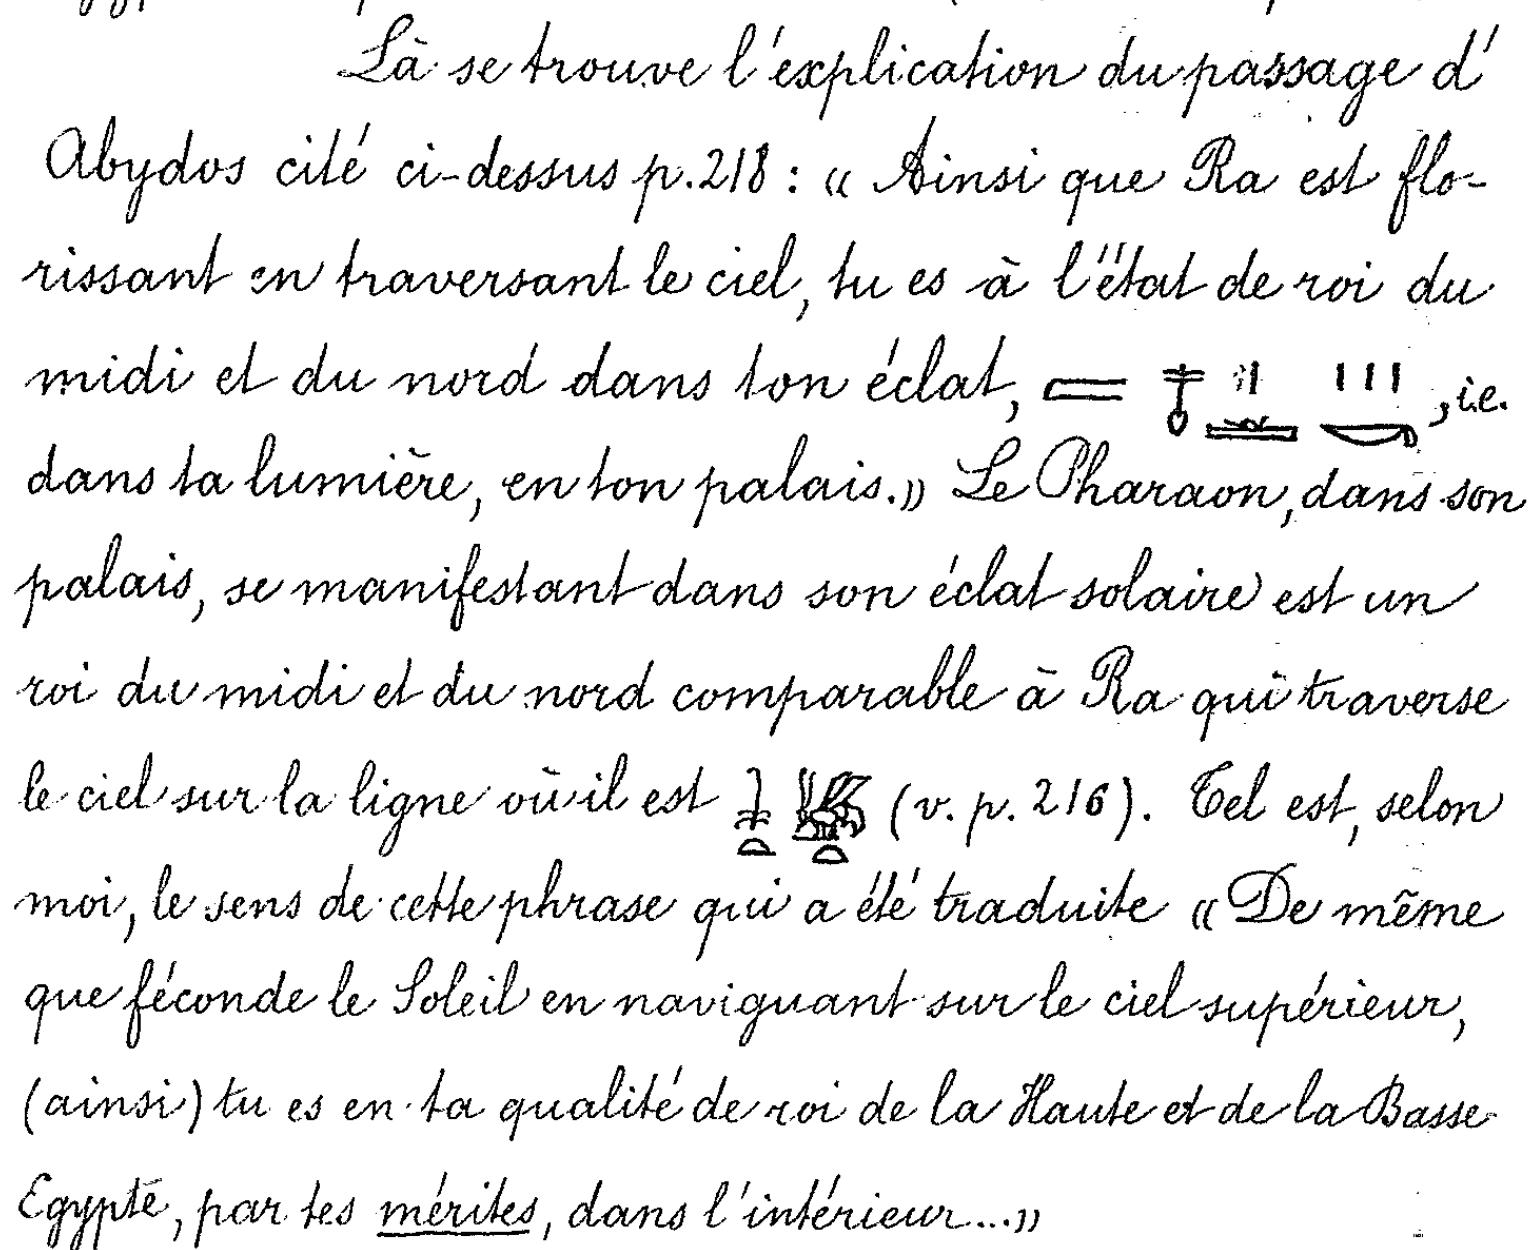 Là se trouve l'explication du passage d'
Abydos cité ci-dessus p. 218 : « Ainsi que Ra est flo-
rissant en traversant le ciel, tu es à l'état de roi du
midi et du nord dans ton éclat, , i.e.
dans ta lumière, en ton palais.» Le Pharaon, dans son
palais, se manifestant dans son éclat solaire est un
roi du midi et du nord comparable à Ra qui traverse
le ciel sur la ligne où il est (v. p. 216). Tel est, selon
moi, le sens de cette phrase qui a été traduite « De même
que féconde le Soleil en naviguant sur le ciel supérieur,
(ainsi) tu es en ta qualité de roi de la Haute et de la Basse
Egypte, par tes mérites, dans l'intérieur...»